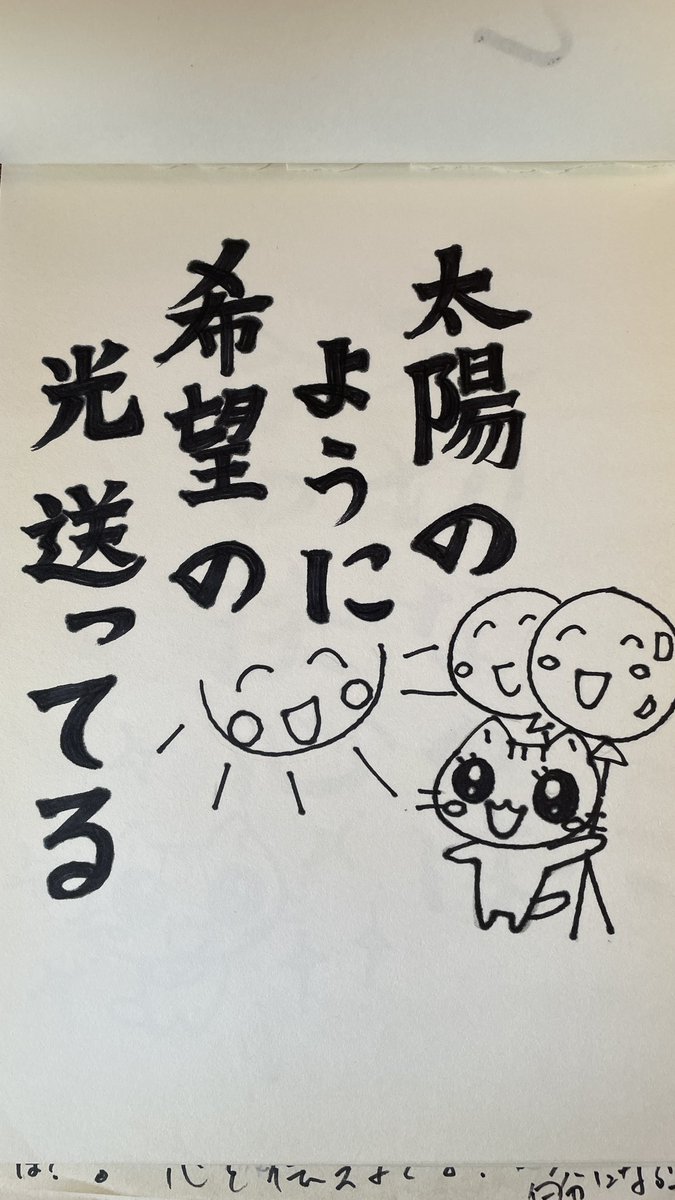 太陽の
ように
希望の
光送ってる